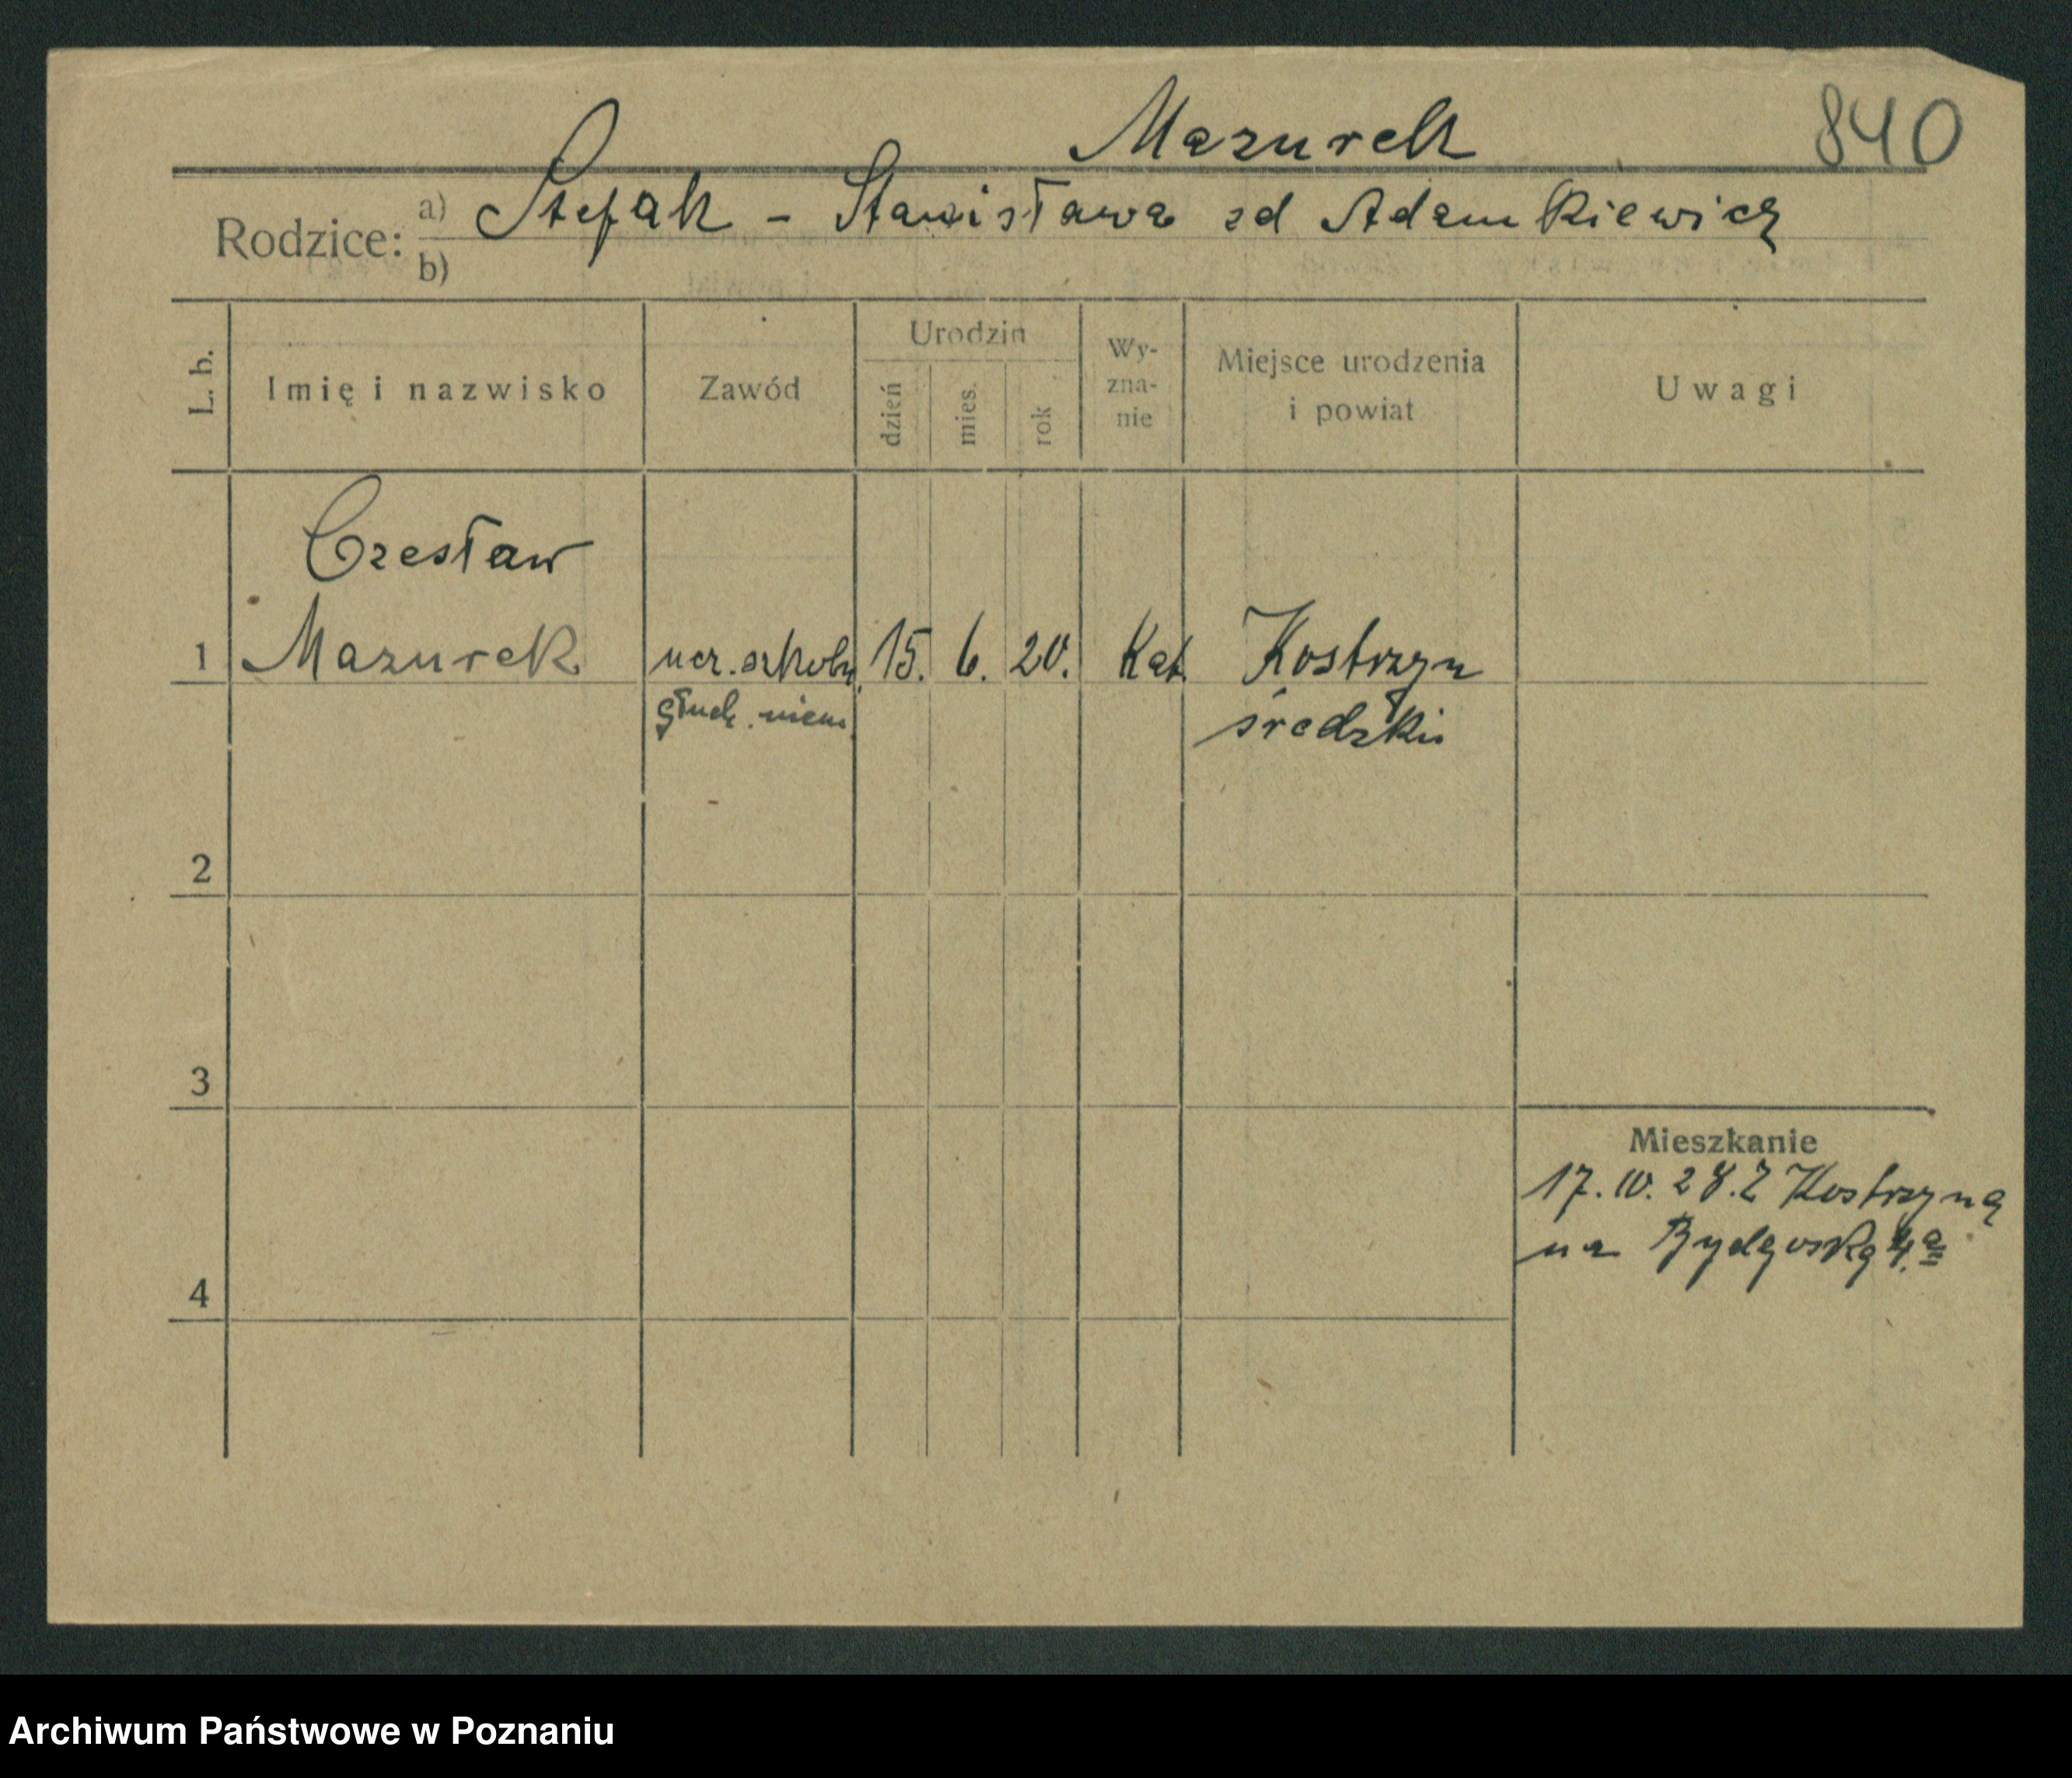 Mazurek
840
Rodzice: a) Stefan - Stanisława zd Adamkiewicz
b)
L. b.
Imię i nazwisko
Zawód
Urodzin
dzień
mies.
rok
Wy-
zna-
nie
Miejsce urodzenia
i powiat
Uwagi
Czesław
1 Mazurek ucz. szkoły 15. 6. 20. Kat. Kostrzyn
głuch. niem. średzki
2
3
Mieszkanie
17. 10. 28. Z Kostrzyna
na Bydgoską 4a
4
Archiwum Państwowe w Poznaniu